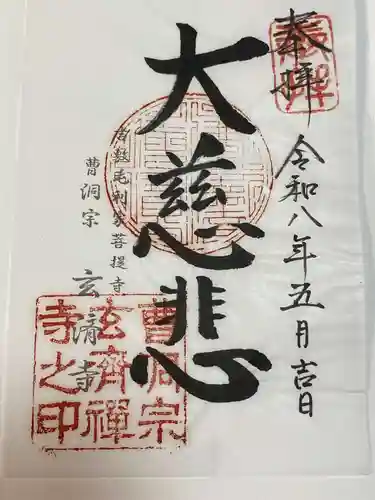 奉拝
令和八年五月吉日
大慈悲
毛利家菩提寺
曹洞宗
玄済寺
曹洞宗
玄齊禅
寺之印